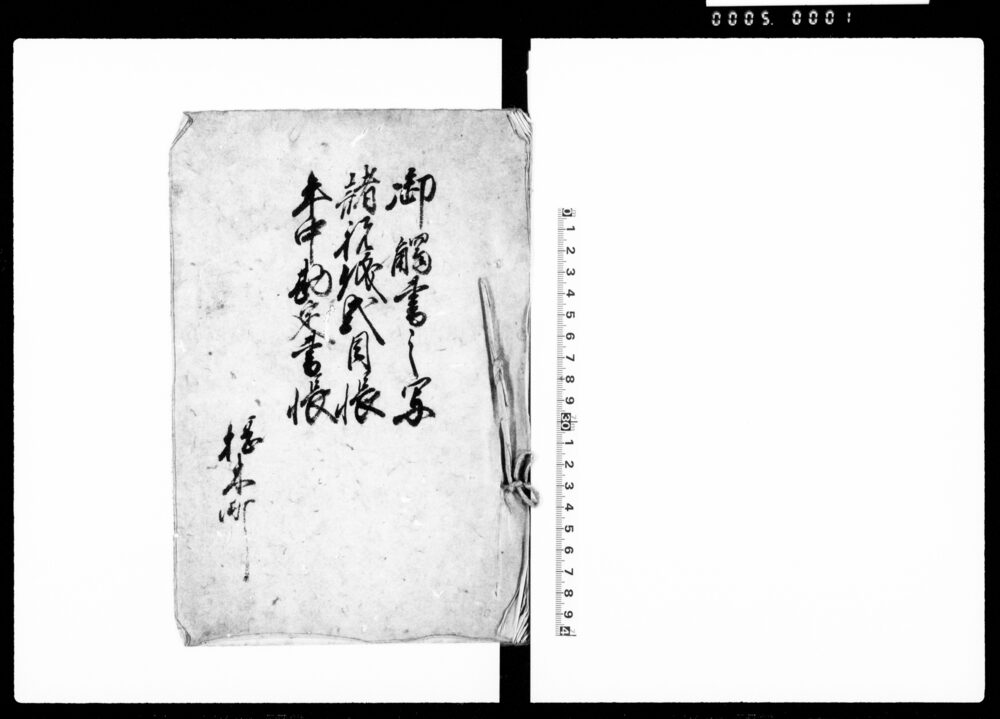 0005. 0001
御觸書之写
諸祝儀式目帳
年中勘定書帳
椹木町
1 2 3 4 5 6 7 8 9 30 1 2 3 4 5 6 7 8 9